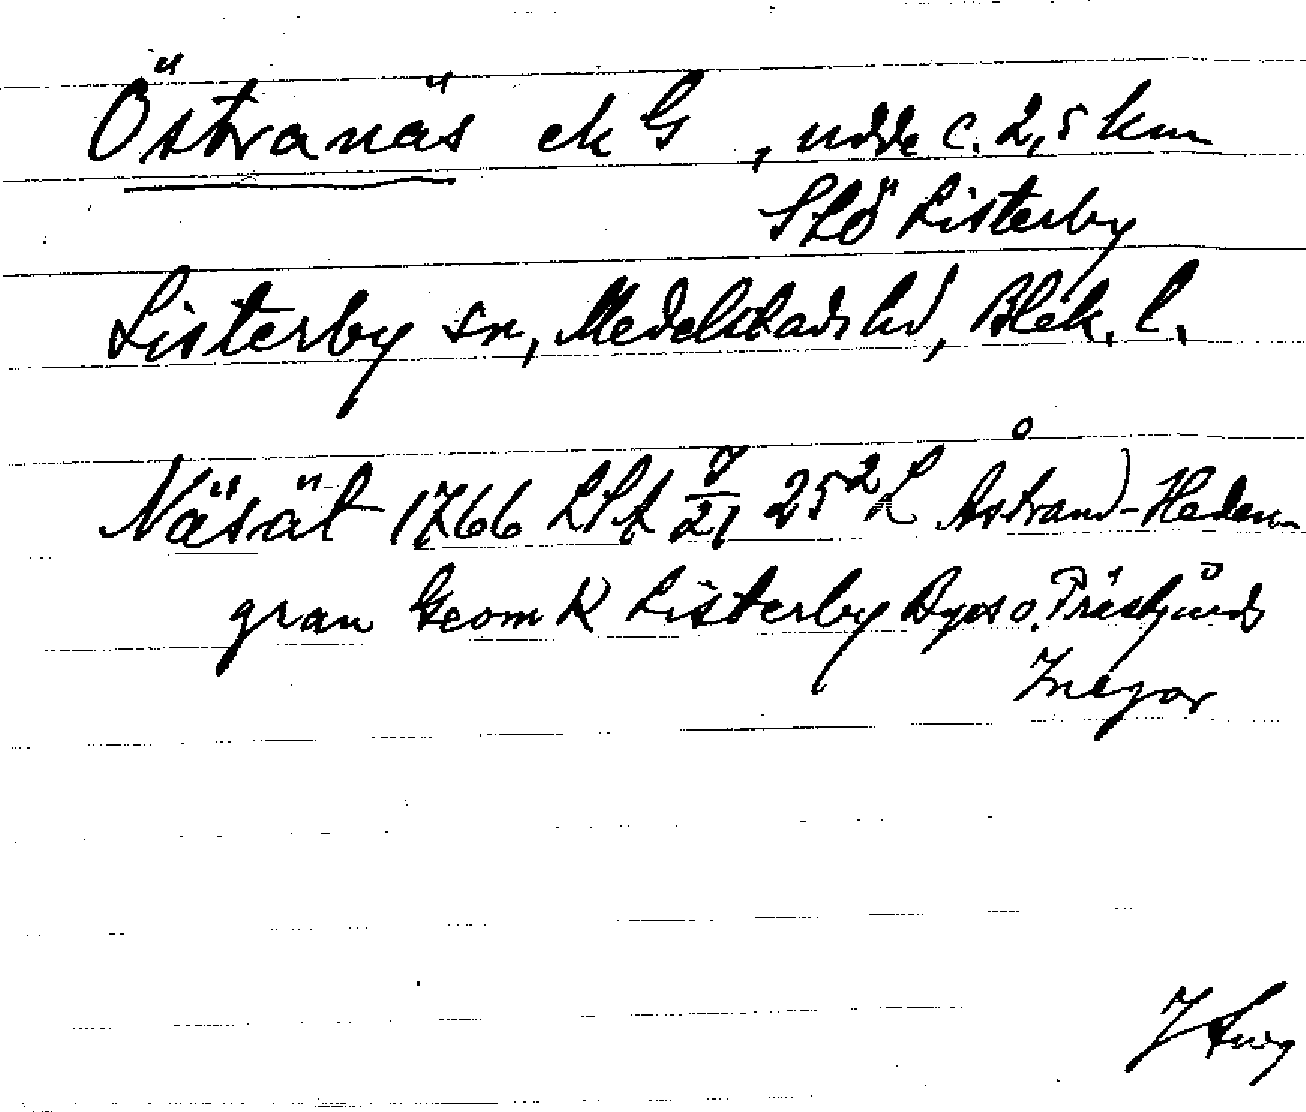 Östranäs ek G, udde c. 2,5 km
SSÖ Listerby
Listerby sn, Medelstads hd, Blek. l.
Näsät 1766 LSA 25²L Åstrand-Heden-
gran Geom K Listerby Byes o. Prästgårds
Inegor